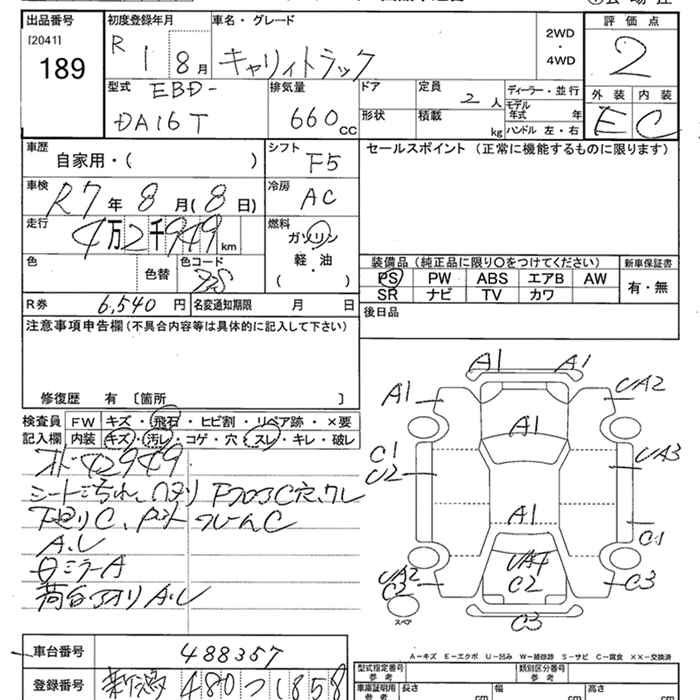 出品番号
[2041]
189
初度登録年月
R 1 8月
車名・グレード
キャリイトラック
2WD
・
4WD
評価点
2
外装 内装
E C
型式
EBD-
DA16T
排気量
660 cc
ドア
形状
定員
2人
積載
kg
ディーラー・並行
モデル
年式 年
ハンドル 左・右
車歴
自家用・( )
シフト
F5
セールスポイント (正常に機能するものに限ります)
車検
R7年8月(8日)
冷房
AC
走行
4万2千949km
燃料
ガソリン
軽・油
( ・ )
色
色替
色コード
装備品 (純正品に限り○をつけてください)
PS PW ABS エアB AW
SR ナビ TV カワ
新車保証書
有・無
R券 6,540 円
名変通知期限 月 日
後日品
注意事項申告欄 (不具合内容等は具体的に記入して下さい)
修復歴 有 〔箇所 〕
検査員
記入欄
FW キズ・飛石・ヒビ割・リペア跡・×要
内装 キズ・汚レ・コゲ・穴・スレ・キレ・破レ
42949
下廻りC、
A.U
ミラーA
荷台アオリA.U
A1 A1
A1 UA2
A1
C1
U2
UA3
A1
C1
UA2
C2
UA4
C2
C3
C3
スペア
A-キズ E-エクボ U-凹み W-補修跡 S-サビ C-腐食 XX-交換済
車台番号 488357
登録番号 新潟 480 つ 1858
型式指定番号
参考
類別区分番号
参考
車庫証明用
参考
長さ cm
幅 cm
高さ cm